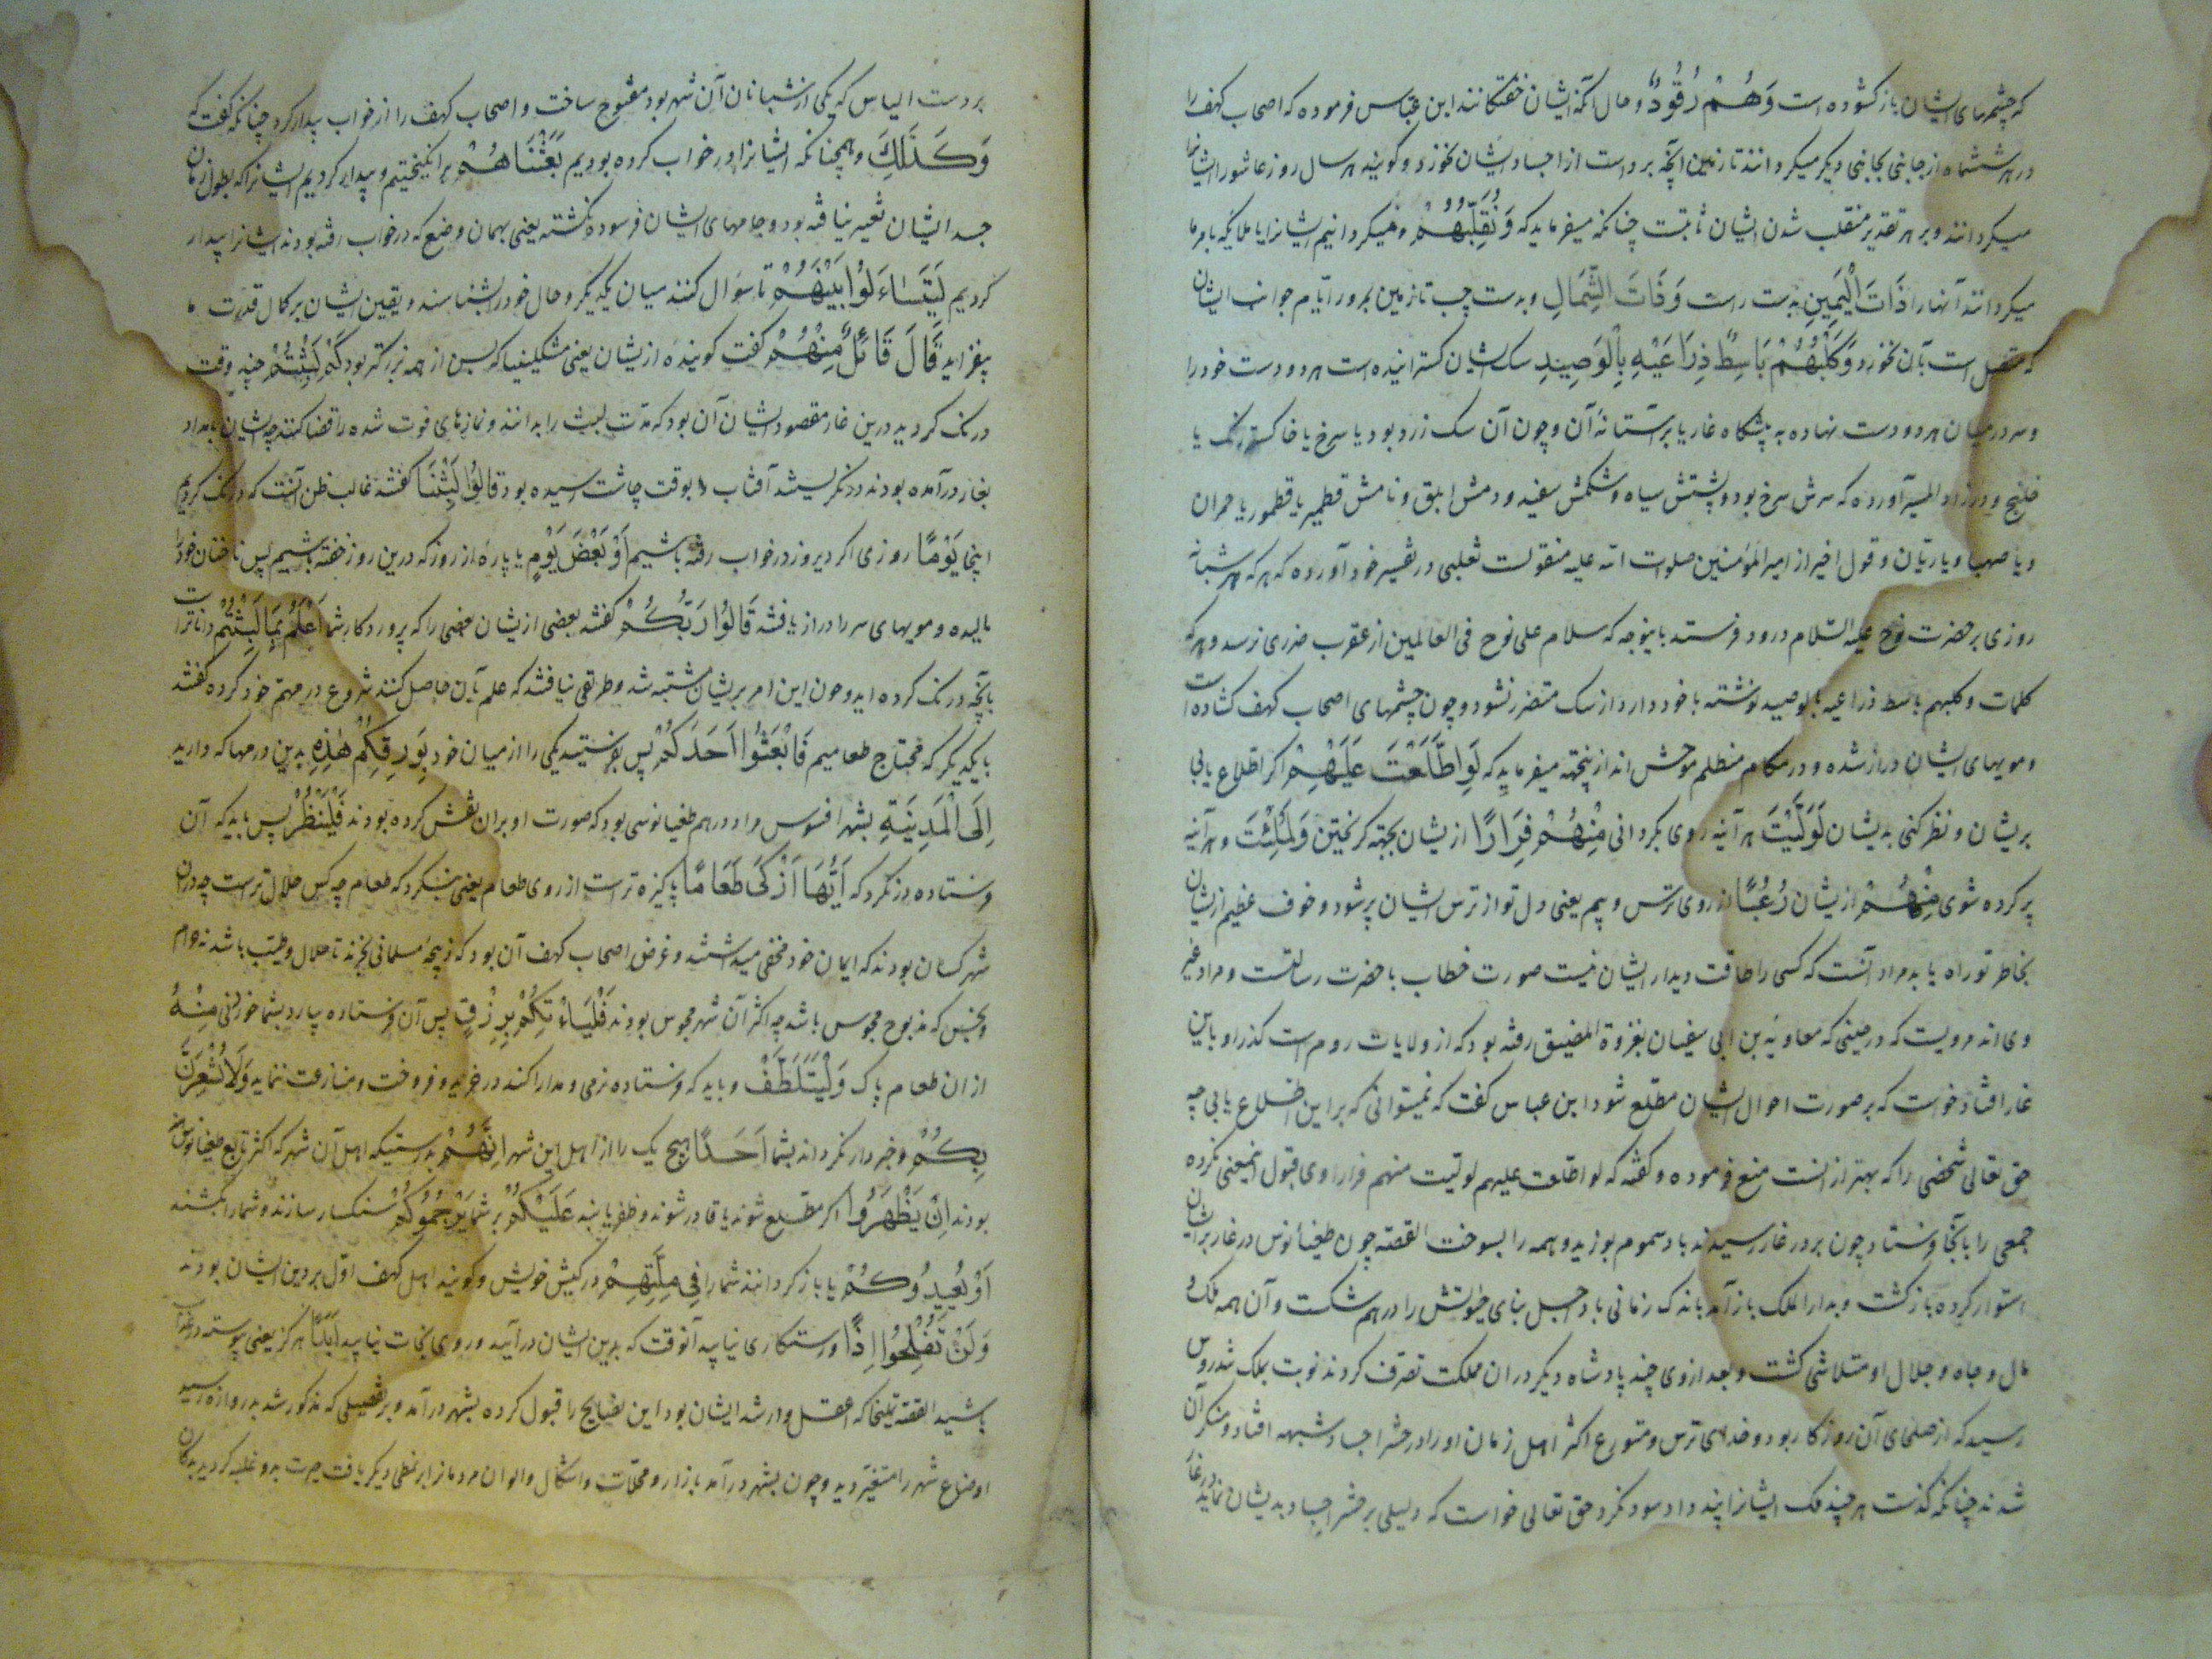 که چشمهای ایشان باز کشوده است وَهُمْ رُقُودٌ و حال آنکه ایشان خفتگانند ابن عباس فرموده که اصحاب کهف را
در هر ششماه از جانبی بجانبی دیگر میگردانند تا زمین آنچه بر وست از اجساد ایشان نخورد و گویند هر سال روز عاشورا ایشانرا
میگردانند و بر هر تقدیر منقلب شدن ایشان ثابتست چنانکه میفرماید که وَنُقَلِّبُهُمْ و میگردانیم ایشانرا یا ملائکه بامر ما
میگردانند آنها را ذَاتَ الْیَمِینِ بدست راست وَذَاتَ الشِّمَالِ و بدست چپ تا زمین بمرور ایام جوانب ایشان
که متصل است بآن نخورد وَکَلْبُهُمْ بَاسِطٌ ذِرَاعَیْهِ بِالْوَصِیدِ سک ایشان کسترانیده است هر دو دست خود را
و سر در میان هر دو دست نهاده به پیشکاه غار یا بر آستانهٔ آن و چون آن سک زرد بود یا سرخ یا خاکستر رنک یا
خلیج و در زاد المسیر آورده که سرش سرخ بود و پشتش سیاه و شکمش سفید و دمش ابلق و نامش قطمیر یا قطمور یا حمران
و یا صهبا و یا ریان و قول اخیر از امیر المؤمنین صلوات الله علیه منقولست ثعلبی در تفسیر خود آورده که هر که هر شبانه
روزی بر حضرت نوح علیه السلام درود فرستد باینوجه که سلام علی نوح فی العالمین از عقرب ضرری نرسد و هر که
کلمات و کلبهم باسط ذراعیه بالوصید نوشته با خود دارد از سک متضرر نشود و چون چشمهای اصحاب کهف کشاده است
و مویهای ایشان دراز شده و در مکام مظلم موحش اند ازینجهته میفرماید که لَوِ اطَّلَعْتَ عَلَیْهِمْ اکر اطلاع یابی
بر یشان و نظر کنی بدیشان لَوَلَّیْتَ هر آینه روی بکردانی مِنْهُمْ فِرَارًا از یشان بجهته کریختن وَلَمُلِئْتَ و هر آینه
پر کرده شوی مِنْهُمْ از یشان رُعْبًا از روی ترس و بیم یعنی دل تو از ترس ایشان پر شود و خوف عظیم ازیشان
بخاطر تو راه یابد مراد آنست که کسی را طاقت دیدار ایشان نیست صورت خطاب با حضرت رسالتست و مراد غیر
وی اند مرویست که در حینی که معاویة بن ابی سفیان بغزوة المضیق رفته بود که از ولایات روم است کذر او باین
غار افتاد خواست که بر صورت احوال ایشان مطلع شود ابن عباس کفت که نمیتوانی که براین اطلاع یابی چه
حق تعالی شخصی را که بهتر از تست منع فرموده و کفته که لو اطلعت علیهم لولیت منهم فرارا وی قبول اینمعنی نکرده
جمعی را بآنجا فرستاد چون بر در غار رسیدند باد سموم بوزید و همه را بسوخت القصه چون طغیانوس در غار بر ایشان
استوار کرده بازکشت و بدار الملک باز آمد باندک زمانی باد اجل بنای خلوتش را درهم شکست و آن همه ملک و
مال و جاه و جلال او متلاشی کشت و بعد از وی چند پادشاه دیکر در ان مملکت تصرف کردند نوبت بملک تندروس
رسید که از صلحای آن روزکار بود و خدای ترس و متورع اکثر اهل زمان او را در حشر اجساد شبهه افتاد و منکر آن
شدند چنانکه کذشت هر چند ملک ایشانرا پند داد سود نکرد حق تعالی خواست که دلیلی بر حشر اجساد بدیشان نماید در غار
بر دست الیاس که یکی از شبانان آن شهر بود مفتوح ساخت و اصحاب کهف را از خواب بیدار کرد چنانکه گفت که
وَکَذٰلِکَ و همچنانکه ایشانرا در خواب کرده بودیم بَعَثْنَاهُمْ بر انکیختیم و بیدار کردیم ایشانرا که بطول زمان
جسد ایشان تغییر نیافته بود و جامهای ایشان فرسوده نکشته یعنی بهمان وضع که در خواب رفته بودند ایشانرا بیدار
کردیم لِیَتَسَاءَلُوا بَیْنَهُمْ تا سؤال کنند میان یکدیکر و حال خود را بشناسند و یقین ایشان بر کمال قدرت ما
بیفزاید قَالَ قَائِلٌ مِنْهُمْ کفت کویندهٔ از یشان یعنی مکسلمینا که بسن از همه بزرکتر بود کَمْ لَبِثْتُمْ چند وقت
درنک کردید درین غار مقصود ایشان آن بود که مدت لبث را بدانند و نمازهای فوت شده را قضا کنند چه ایشان بامداد
بغار در آمده بودند و درنکریستند آفتاب را بوقت چاشت رسیده بود قَالُوا لَبِثْنَا کفتند غالب ظن آنست که درنک کردیم
اینجا یَوْمًا روزی اکر دیروز در خواب رفته باشیم اَوْ بَعْضَ یَوْمٍ یا پارهٔ از روز که درین روز خفته باشیم پس ناخنان خود را
بالیده و مویهای سر را دراز یافتند قَالُوا رَبُّکُمْ کفتند بعضی از یشان بعضی را که پروردکار شما اَعْلَمُ بِمَا لَبِثْتُمْ داناتر است
بآنچه درنک کرده اید و چون این امر بر یشان مشتبه شد و طریقی نیافتند که علم بآن حاصل کنند شروع در مهم خود کرده کفتند
با یکدیکر که محتاج طعامیم فَابْعَثُوا اَحَدَکُمْ پس بفرستید یکی را از میان خود بِوَرِقِکُمْ هٰذِهِ بدین درمها که دارید
اِلَی الْمَدِینَةِ بشهر افسوس مراد درهم طغیانوسی بود که صورت او بران نقش کرده بودند فَلْیَنْظُرْ پس باید که آن
فرستاده در نکرد که اَیُّهَا اَزْکٰی طَعَامًا پاکیزه تر است از روی طعام یعنی بنکرد که طعام چه کس حلال تر است چه دران
شهر کسان بودند که ایمان خود مخفی میداشتند و غرض اصحاب کهف آن بود که ذبیحهٔ مسلمانی بخرند تا حلال و طیب باشد نه حرام
و نجس که مذبوح مجوس باشد چه اکثر آن شهر مجوس بودند فَلْیَأْتِکُمْ بِرِزْقٍ پس آن فرستاده بیارد بشما خوردنی مِنْهُ
از ان طعام پاک وَلْیَتَلَطَّفْ و باید که فرستاده نرمی و مدارا کند در خرید و فروخت و منازعت ننماید وَلَا یُشْعِرَنَّ
بِکُمْ و خبردار نکرداند بشما اَحَدًا هیچ یک را از اهل این شهر اِنَّهُمْ بدرستیکه اهل آن شهر که اکثر تابع طغیانوس
بودند اِنْ یَظْهَرُوا اکر مطلع شوند یا قادر شوند و ظفر یابند عَلَیْکُمْ بر شما یَرْجُمُوکُمْ سنکسار سازند و شما را بکشند
اَوْ یُعِیدُوکُمْ یا باز کردانند شما را فِی مِلَّتِهِمْ در کیش خویش و کویند اهل کهف اول بر دین ایشان بودند
وَلَنْ تُفْلِحُوا اِذًا و رستکاری نیابید آنوقت که بدین ایشان در آیید و روی نجات نیابید اَبَدًا هرکز یعنی پیوسته در عذاب
باشید القصه یملیخا که اعقل و ارشد ایشان بود این نصایح را قبول کرده بشهر در آمد و بر تفصیلی که مذکور شد بدروازه رسید
اوضاع شهر را متغیر دید و چون بشهر در آمد بازار و محلات و اشکال و الوان مردمانرا بر نمطی دیکر یافت حیرت برو غلبه کردید بدکان